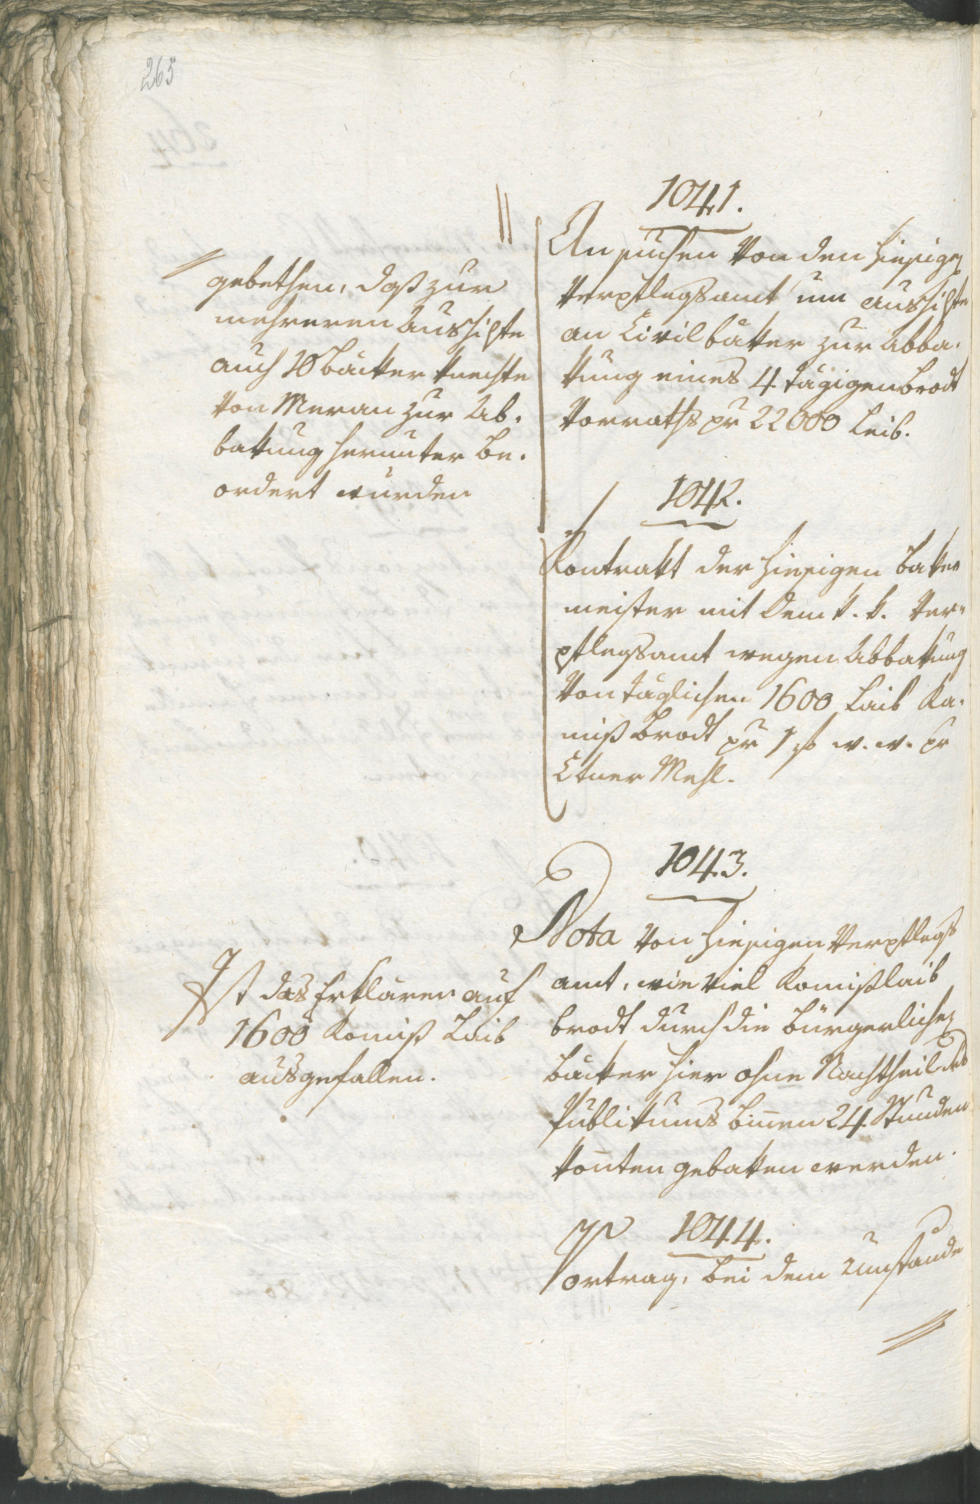 265
1041.
Ansuchen von den hiesigen
Verpflegsamt um aushilfe
an Civilbäker zur Abba-
kung eines 4 tägigen Brodt
Vorraths pr 22000 Leib.
gebethen, daß zur
mehreren Aushilfe
auch 10 Bäcker Knechte
von Meran zur Ab-
bakung herunter be-
ordert wurden
1042.
Contrakt der hiesigen Bäker
meister mit dem k. k. Ver-
pflegsamt wegen Abbakung
von täglichen 1600 Laib Ko-
miß Brodt pr 1 f w. w. pr
Ctner Mehl.
1043.
Nota von hiesigen Verpflegs
amt, wie viel Komißlaib
brodt durch die bürgerlichen
Bäcker hier ohne Nachtheil des
Publikums biñen 24 Stunden
köñten gebaken werden.
Ist das Erklären auf
1600 Komiß Laib
ausgefallen.
1044.
Vortrag, bei dem Umstande